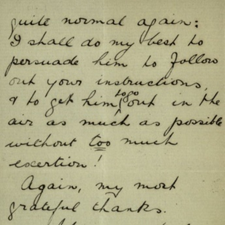 quite normal again:
I shall do my best to
persuade him to follow
out your instructions,
& to get him to go out in the
air as much as possible
without too much
exertion!
Again, my most
grateful thanks.